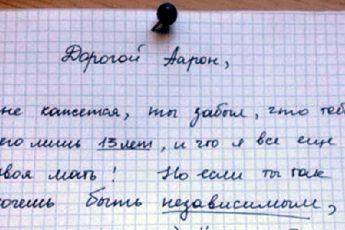 Дорогой Аарон,
не кажется, ты забыл, что теб
его лишь 13 лет, и что я все еще
воя мать! Но если ты так
хочешь быть независимым,